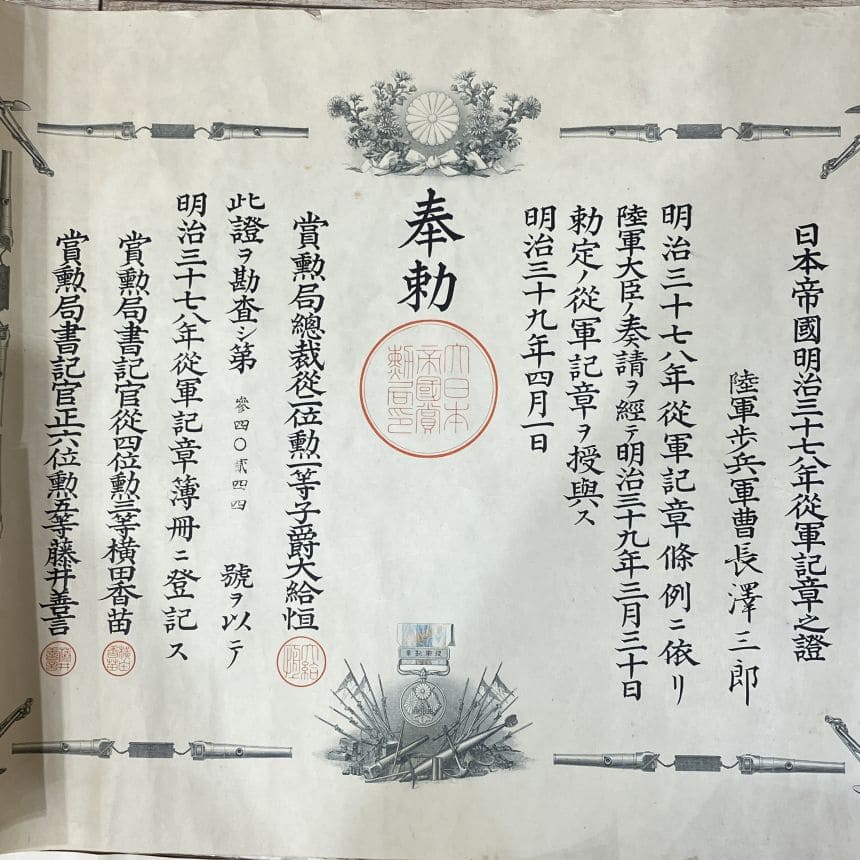 日本帝國明治三十七八年從軍記章之證
陸軍步兵軍曹長澤三郎
明治三十七八年從軍記章條例ニ依リ
陸軍大臣ノ奏請ヲ經テ明治三十九年三月三十日
勅定ノ從軍記章ヲ授與ス
明治三十九年四月一日
奉勅
大日本
帝國賞
勲局印
賞勲局總裁從二位勲一等子爵大給恒
此證ヲ勘査シ第參四〇貳四四號ヲ以テ
明治三十七八年從軍記章簿冊ニ登記ス
賞勲局書記官從四位勲三等橫田香苗
賞勲局書記官正六位勲五等藤井善言
從軍記章